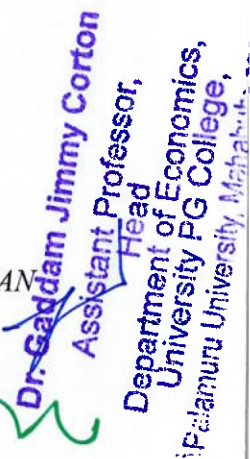 AN
Dr. Gaddam Jimmy Corton
Assistant Professor,
Head
Department of Economics,
University PG College,
Palamuru University,